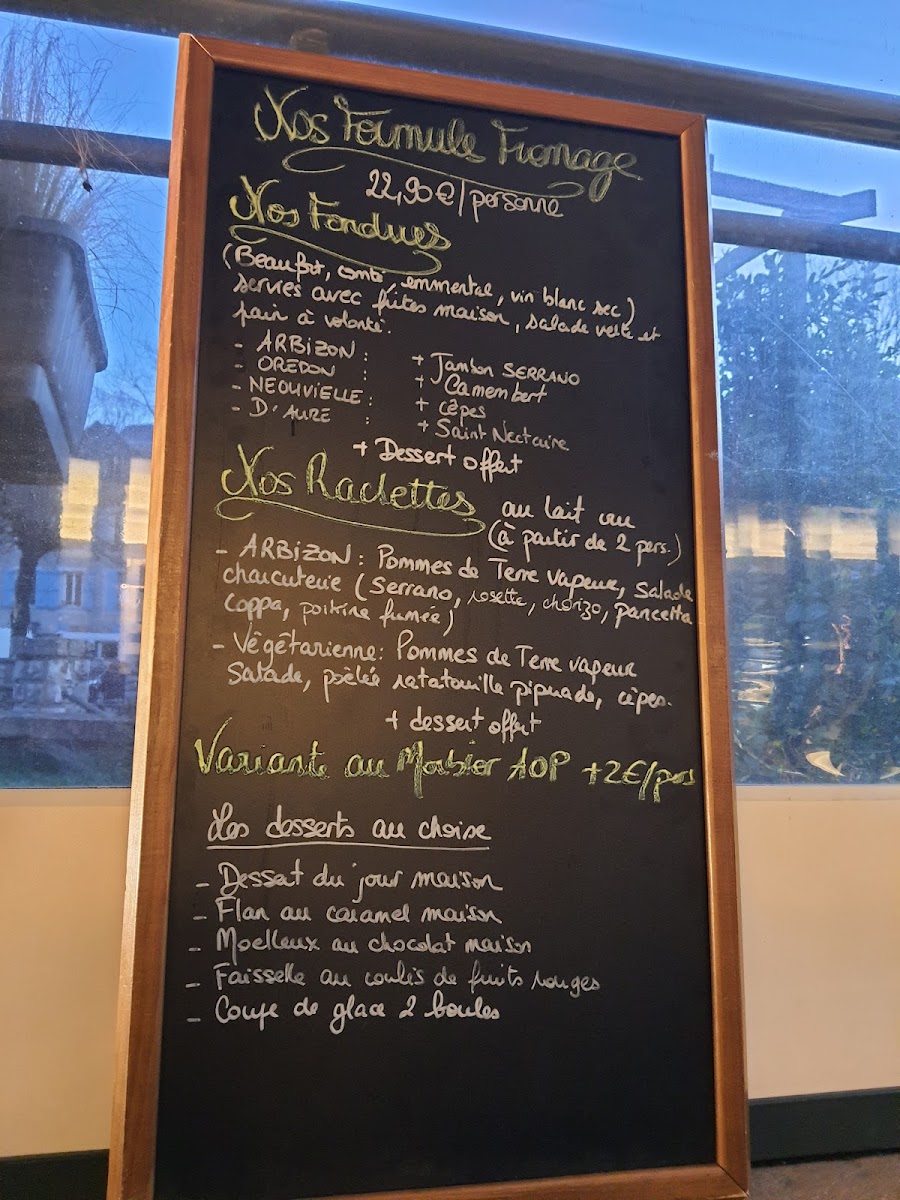 Nos Formule Fromage
22,90€/personne
Nos Fondues
(Beaufort, comté, emmental, vin blanc sec)
servies avec frites maison, salade verte et
pain à volonté.
- ARBIZON : + Jambon SERRANO
- OREDON : + Camembert
- NEOUVIELLE : + cêpes
- D'AURE : + Saint Nectaire
+ Dessert offert
Nos Raclettes au lait cru
(à partir de 2 pers.)
- ARBIZON : Pommes de Terre vapeur, Salade
charcuterie (Serrano, rosette, chorizo, pancetta
coppa, poitrine fumée)
- Végétarienne : Pommes de Terre vapeur
Salade, poêlée ratatouille piperade, cêpes.
+ dessert offert
Variante au Morbier AOP +2€/pers
Les desserts au choix
- Dessert du jour maison
- Flan au caramel maison
- Moelleux au chocolat maison
- Faisselle au coulis de fruits rouges
- Coupe de glace 2 boules